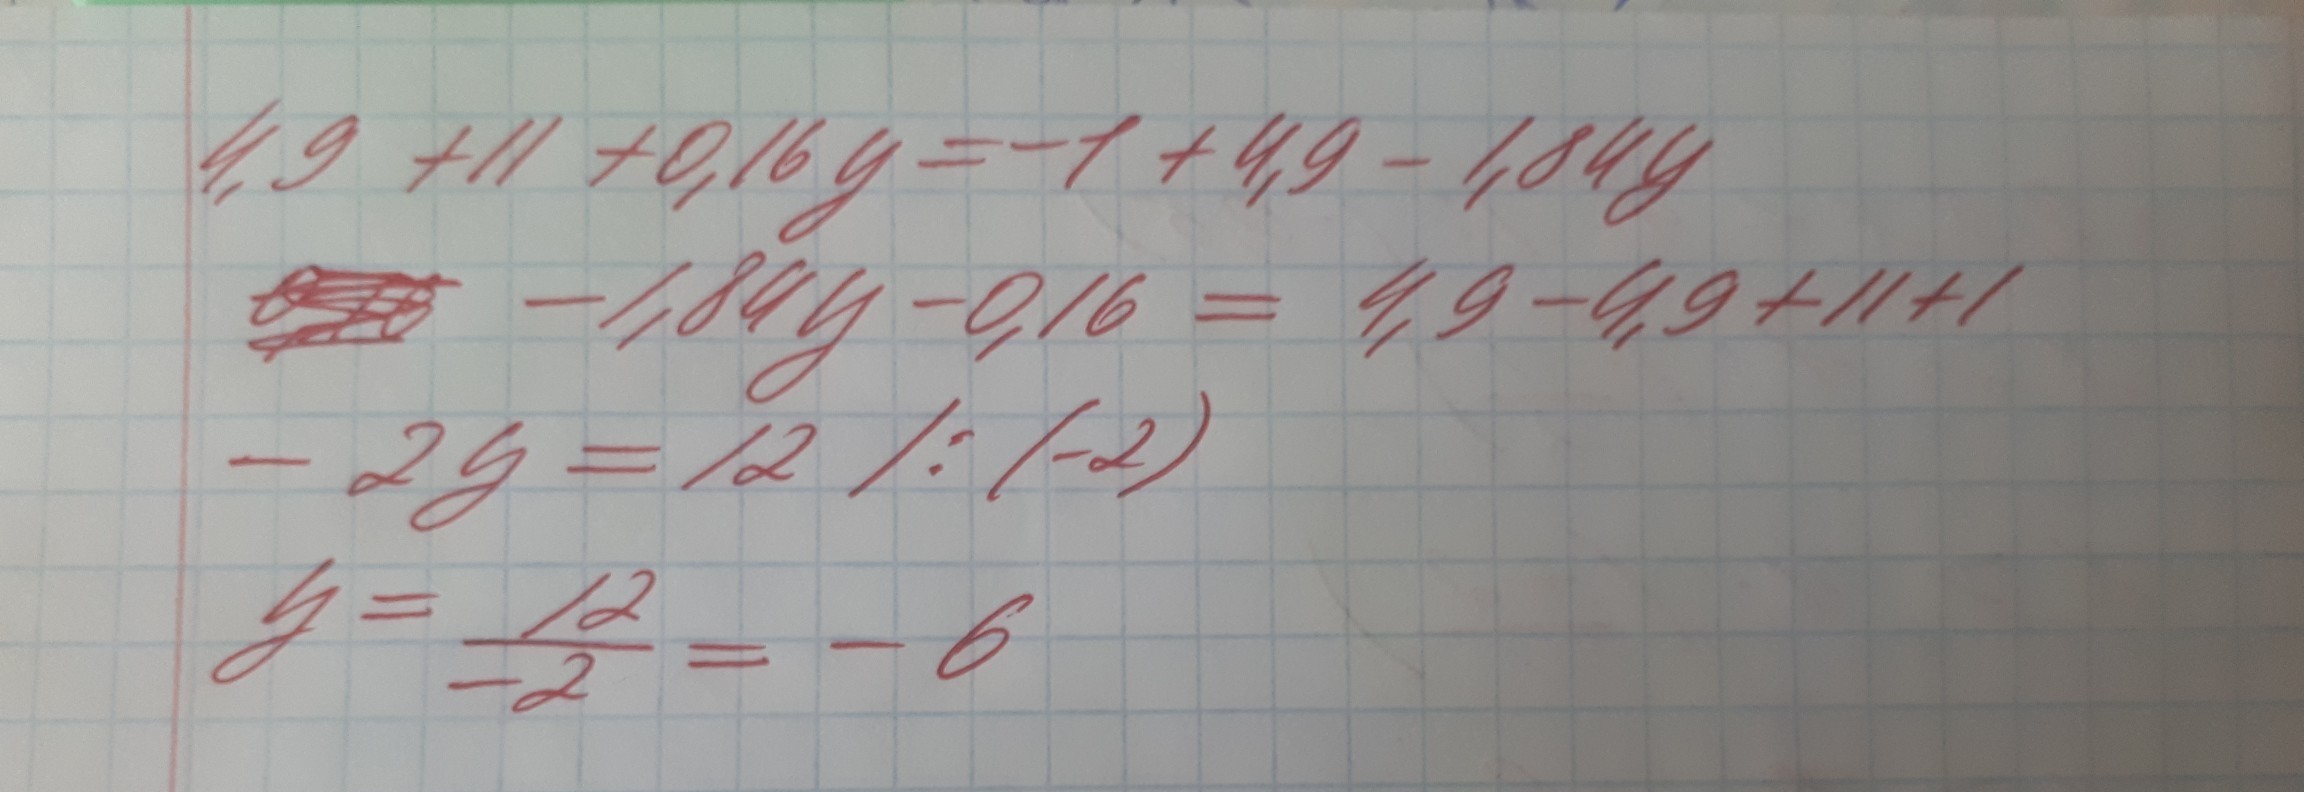 4,9 + 11 + 0,16y = - 1 + 4,9 - 1,84y
- 1,84y - 0,16 = 4,9 - 4,9 + 11 + 1
- 2y = 12 /: (-2)
y = 12/-2 = - 6